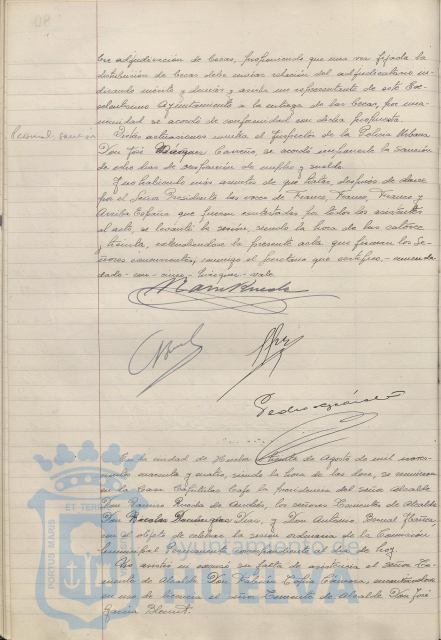 bre adjudicación de becas, proponiendo que una vez fijada la
distribución de becas debe enviar relación del adjudicatario in-
dicando mérito y demás y asista un representante de este Ex-
celentísimo Ayuntamiento a la entrega de las becas, por una-
nimidad se acordó de conformidad con dicha propuesta.
Personal. Sanción
Vistas actuaciones contra el Inspector de la Policía Urbana
Don José Márquez Carreño, se acordó imponerle la sanción
de ocho días de suspensión de empleo y sueldo.
Y no habiendo más asuntos de que tratar, después de darse
por el Señor Presidente las voces de Franco, Franco, Franco y
Arriba España que fueron contestadas por todos los asistentes
al acto, se levantó la sesión, siendo la hora de las catorce
y treinta, extendiéndose la presente acta que firman los Se-
ñores concurrentes, conmigo el Secretario que certifico.- enmen-
dado - vale
Pedro
En la ciudad de Huelva treinta de Agosto de mil nove-
cientos cuarenta y cuatro, siendo la hora de las doce, se reunieron
en la Casa Capitular bajo la presidencia del señor Alcalde
Don Ramiro Rueda de los señores Tenientes de Alcalde
Don Nicolás y Don Antonio
con el objeto de celebrar la sesión ordinaria de la Comisión
Municipal Permanente correspondiente al día de hoy
No asistió ni excusó su falta de asistencia el señor Te-
niente de Alcalde Don Cámara, encontrándose
en uso de licencia el señor Teniente de Alcalde Don José
García
PORTUS MARIS
ET TERRAE
Ayuntamiento de
HUELVA